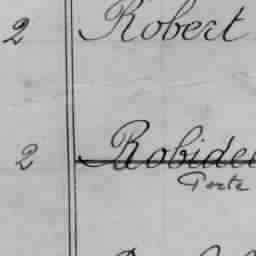 2 Robert
2 Robide
Porte